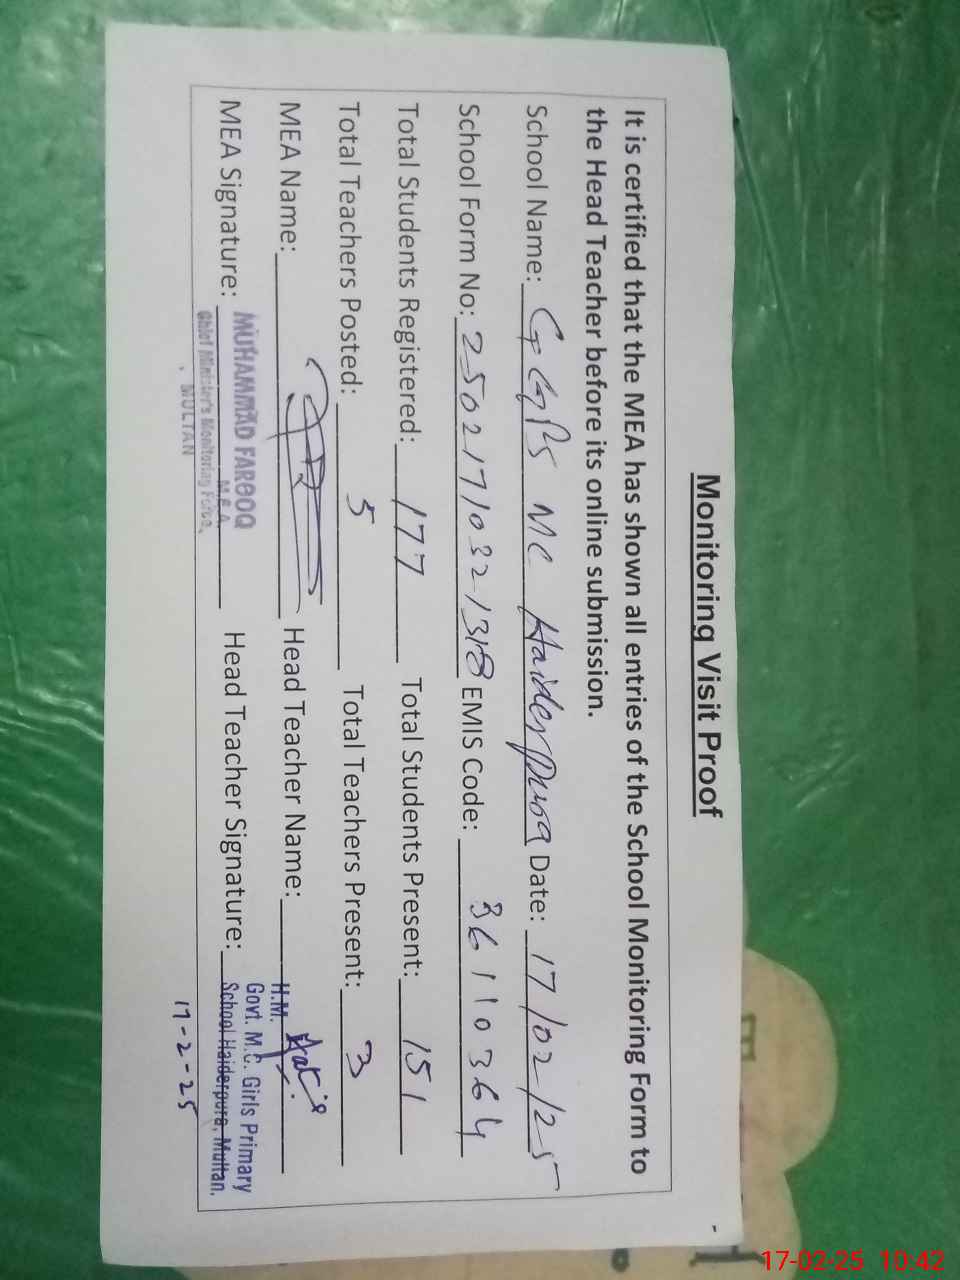 Monitoring Visit Proof
It is certified that the MEA has shown all entries of the School Monitoring Form to
the Head Teacher before its online submission.
School Name: GGPS MC Haiderpura Date: 17/02/25
School Form No: 25021710321318 EMIS Code: 36110364
Total Students Registered: 177 Total Students Present: 151
Total Teachers Posted: 5 Total Teachers Present: 3
MEA Name: Head Teacher Name:
MEA Signature: Head Teacher Signature:
MUHAMMAD FAROOQ
M.E.A.
Chief Minister's Monitoring Force,
MULTAN
H.M.
Govt. M.C. Girls Primary
School Haiderpura, Multan.
17-2-25
17-02-25 10:42